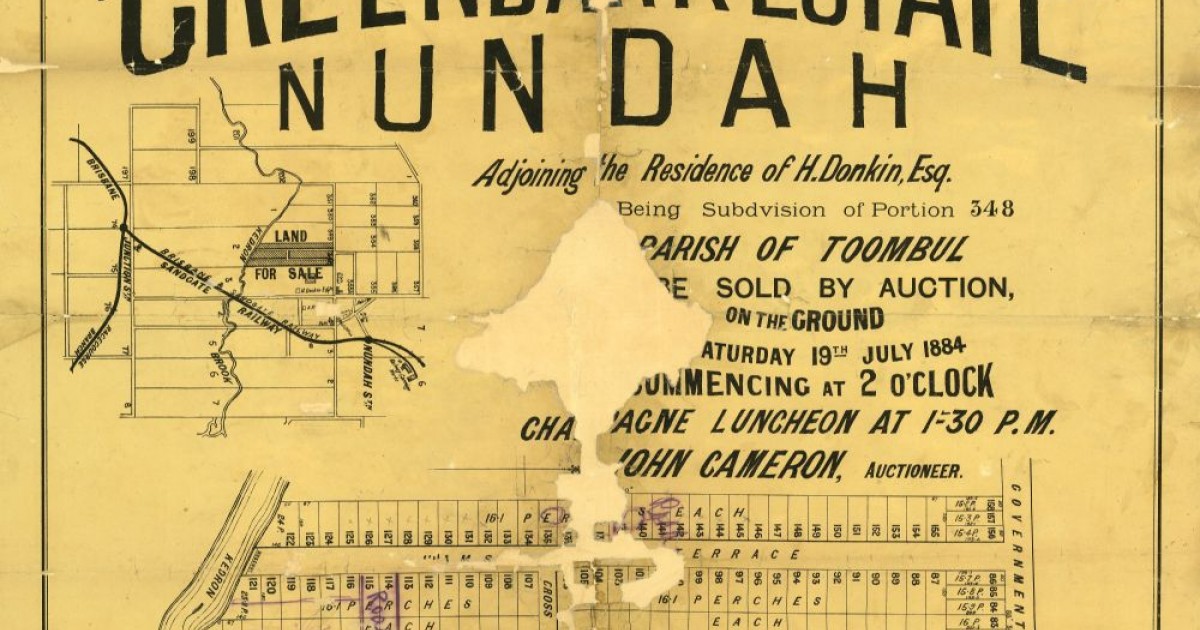 ESTATE
NUNDAH
Adjoining the Residence of H. Donkin, Esq.
Being Subdvision of Portion 348
PARISH OF TOOMBUL
BE SOLD BY AUCTION,
ON THE GROUND
ATURDAY 19TH JULY 1884
COMMENCING AT 2 O'CLOCK
CHA AGNE LUNCHEON AT 1-30 P.M.
JOHN CAMERON, AUCTIONEER.
199
198
197
BRISBANE
JUNCTION ST
RACECOURSE BRANCH
BRISBANE & SANDGATE
SANDGATE RAILWAY
RAILWAY
KEDRON
BROOK
LAND
FOR SALE
NUNDAH STN
KEDRON
GOVERNMENT
16·1 PER S EACH
122 123 124 125 126 127 128 129 130 131 132 133 134 135 140 141 142 143 144 145 146 147 148 149 150 151 152 153 154 155
156
157
158
TERRACE
121 120 119 118 117 116 115 114 113 112 111 110 109 108 107 99 98 97 96 95 94 93 92 91 90 89 88 87
86
85
84
83
16·1 PERCHES
16·1 PERCHES
EACH
EACH
CROSS